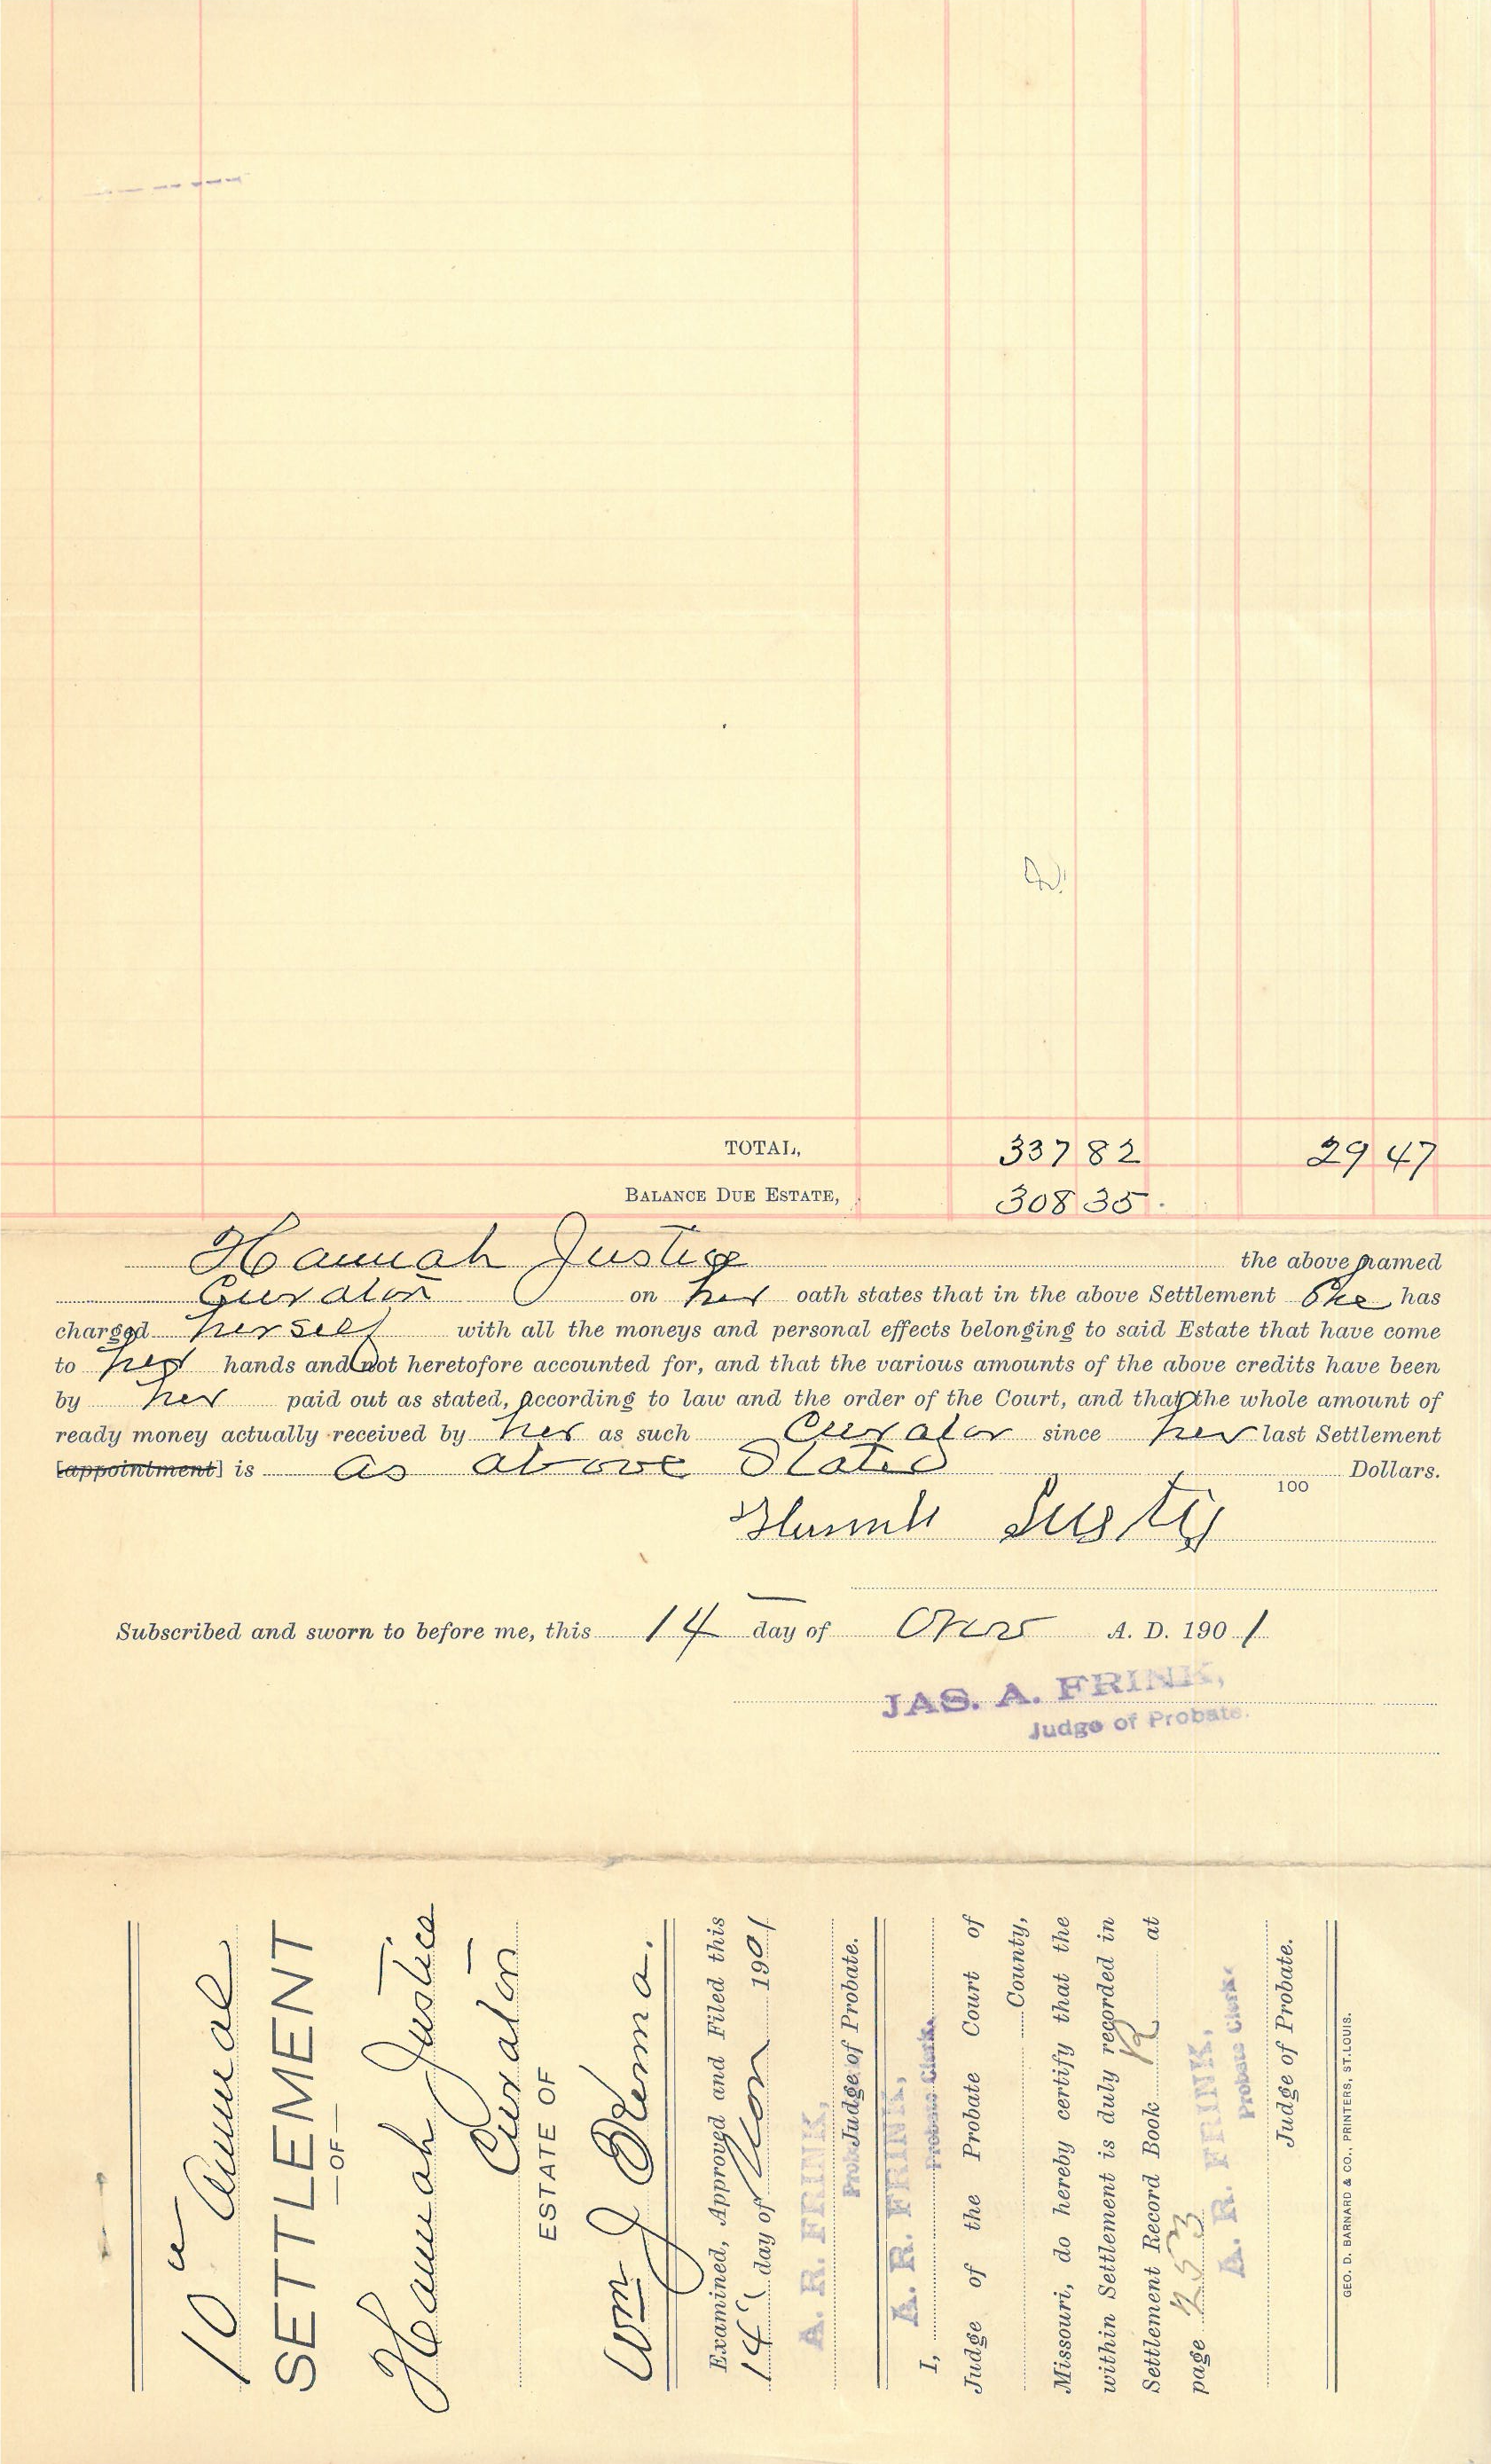 TOTAL, 337 82 29 47
BALANCE DUE ESTATE, 308 35.
Hannah Justice the above named
Curator on her oath states that in the above Settlement She has
charged herself with all the moneys and personal effects belonging to said Estate that have come
to her hands and not heretofore accounted for, and that the various amounts of the above credits have been
by her paid out as stated, according to law and the order of the Court, and that the whole amount of
ready money actually received by her as such Curator since her last Settlement
[appointment] is as above Stated Dollars.
100
Subscribed and sworn to before me, this 14 day of Nov A. D. 190 1
JAS. A. FRINK,
Judge of Probate.
10" Annual
SETTLEMENT
—OF—
Hannah Justice
Curator
ESTATE OF
Wm J
Examined, Approved and Filed this
14" day of Nov 1901
A. R. FRINK,
Judge of Probate.
I, A. R. FRINK,
Probate Clerk.
Judge of the Probate Court of
County,
Missouri, do hereby certify that the
within Settlement is duly recorded in
Settlement Record Book R at
page 253
A. R. FRINK,
Probate Clerk.
Judge of Probate.
GEO. D. BARNARD & CO., PRINTERS, ST. LOUIS.